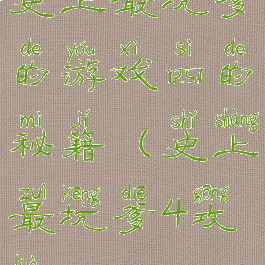 史上最坑爹
de yóu xì sì de
的游戏四的
mì jí shǐ shàng
秘籍（史上
zuì kēng diē gōng
最坑爹4攻